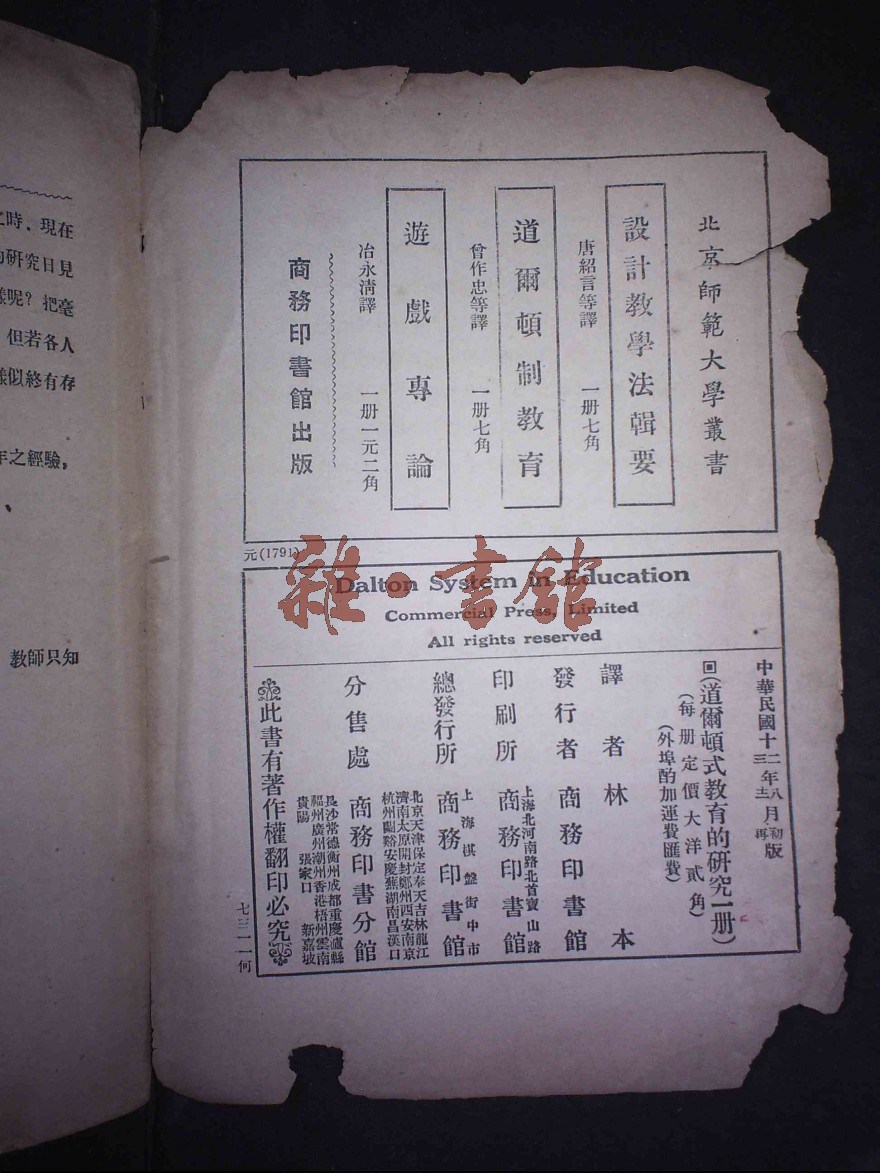 之時．現在
的研究日見
樣呢？把毫
但若各人
樣似終有存
年之經驗，
教師只知
北京師範大學叢書
設計教學法輯要
唐紹言等譯 一册七角
道爾頓制教育
曾作忠等譯 一册七角
遊戲專論
冶永清譯 一册一元二角
商務印書館出版
元(1791)
雜·書館
Dalton System in Education
Commercial Press, Limited
All rights reserved
中華民國十二年八月初版
三 十二 再
回(道爾頓式教育的研究一册)
(每册定價大洋貳角)
(外埠酌加運費匯費)
譯者 林本
發行者 商務印書館
印刷所 上海北河南路北首寶山路 商務印書館
總發行所 上海棋盤街中市 商務印書館
分售處 商務印書分館
北京天津保定奉天吉林龍江
濟南太原開封鄭州西安南京
杭州蘭谿安慶蕪湖南昌漢口
長沙常德衡州成都重慶瀘縣
福州廣州潮州香港梧州雲南
貴陽 張家口 新嘉坡
此書有著作權翻印必究
七三一一何